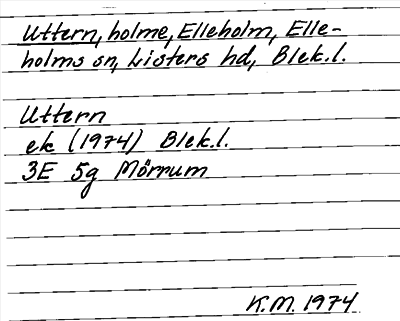 Uttern, holme, Elleholm, Elle-
holms sn, Listers hd, Blek.l.
Uttern
ek (1974) Blek.l.
3E 5g Mörrum
K.M. 1974